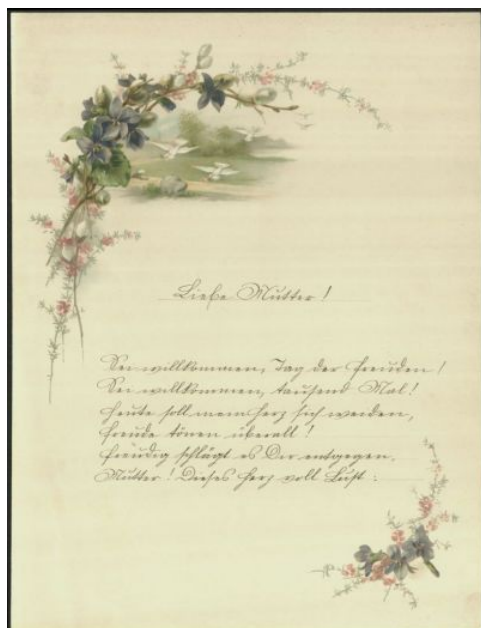 Liebe Mutter!
Sei willkommen, Tag der Freuden!
Sei willkommen, tausend Mal!
Heute soll mein Herz sich weiden,
Freude tönen überall!
Freudig schlägt es Dir entgegen.
Mutter! Dieses Herz voll Lust: